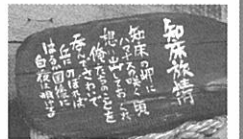 知床旅情
知床の岬に
ハマナスの咲く頃
思い出しておくれ
俺たちのことを
呑んでさわいで
丘にのぼれば
はるか国後に
白夜は明ける